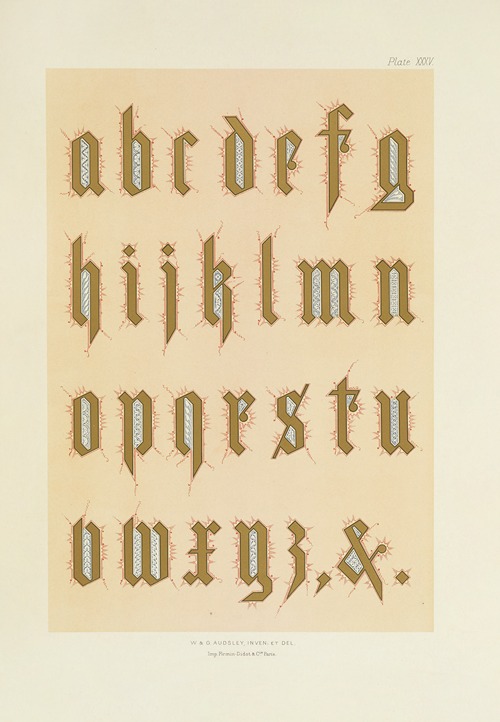 Plate XXXV.
a b c d e f g
h i j k l m n
o p q r s t u
v w x y z , & .
W. & G. AUDSLEY, INVEN. ET DEL.
Imp. Firmin-Didot & Cie Paris.